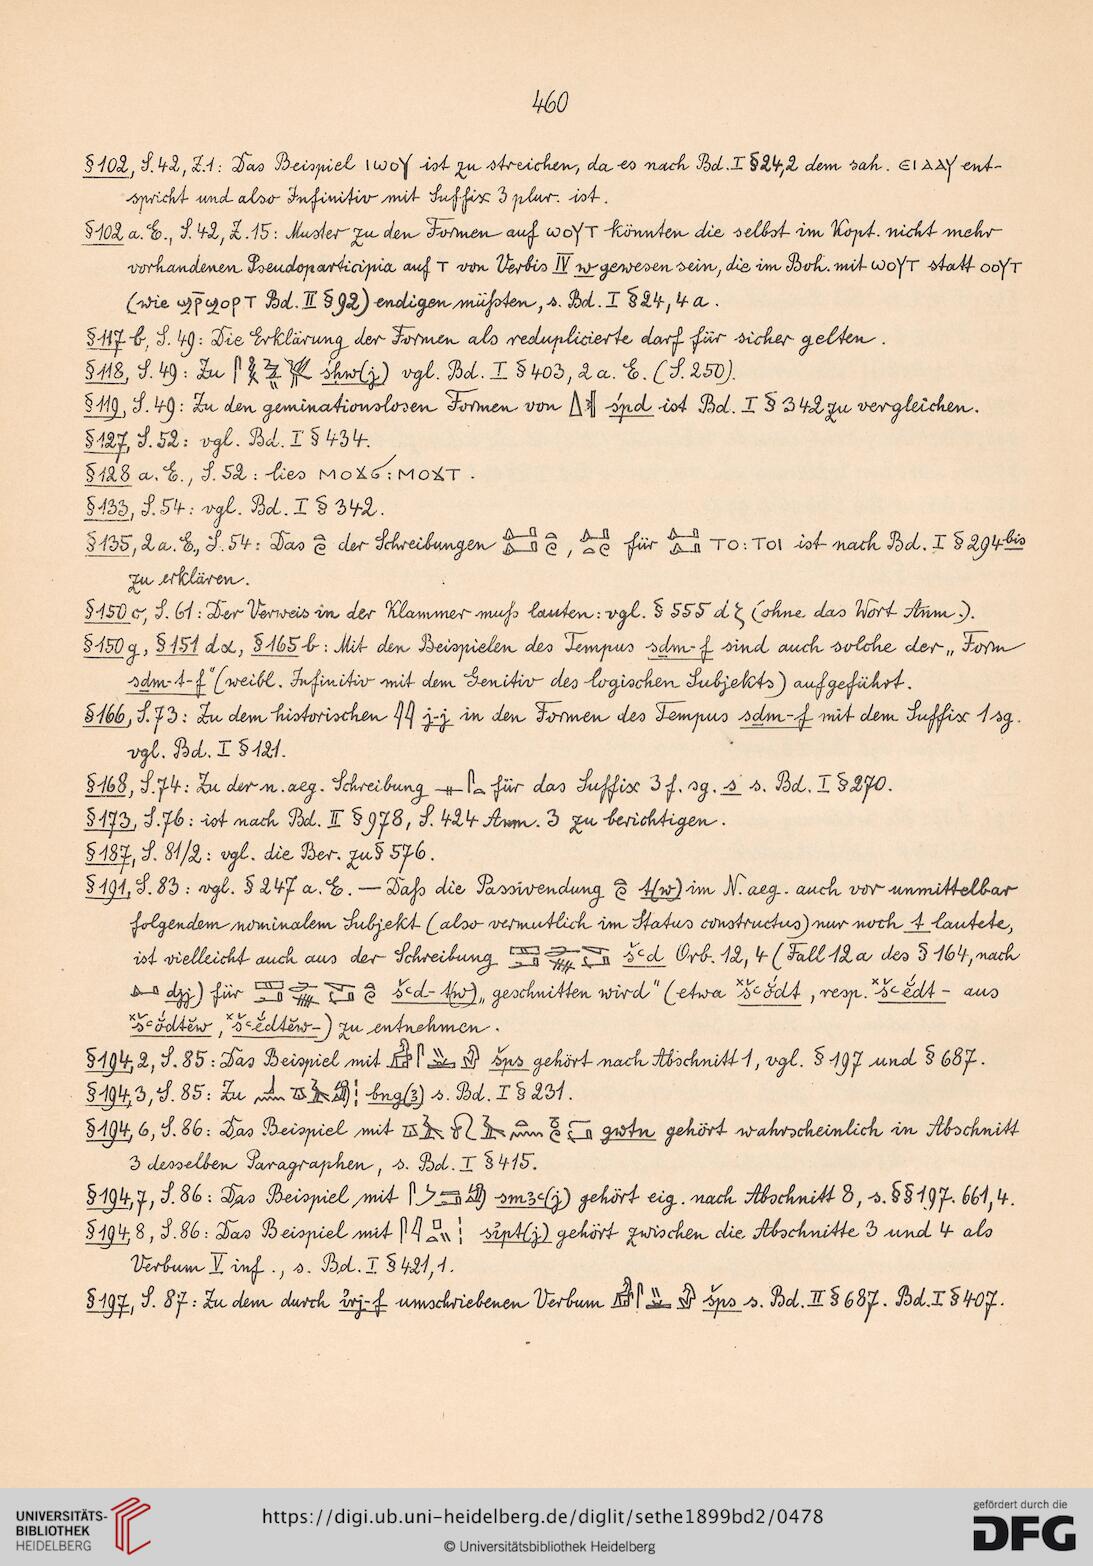 460
§102, S.42, Z.1: Das Beispiel ⲓⲱⲟⲩ ist zu streichen, da es nach Bd. I §24,2 dem sah. ⲉⲓⲁⲁⲩ ent-
spricht und also Infinitiv mit Suffix 3 plur. ist.
§102 a. E., S.42, Z.15: Muster zu den Formen auf ⲱⲟⲩⲧ könnten die selbst im Kopt. nicht mehr
vorhandenen Pseudoparticipia auf ⲧ von Verbis IV w gewesen sein, die im Boh. mit ⲱⲟⲩⲧ statt ⲟⲟⲩⲧ
(wie Bd. II §92) endigen müßten, s. Bd. I §24, 4a.
§117 b, S. 49: Die Erklärung der Formen als reduplicierte darf für sicher gelten.
§118, S. 49: Zu vgl. Bd. I §403, 2 a. E. (S. 250).
§119, S. 49: Zu den geminationslosen Formen von śpd ist Bd. I §342 zu vergleichen.
§127, S. 52: vgl. Bd. I §434.
§128 a. E., S. 52: lies ⲙⲟϫϭ: ⲙⲟϫⲧ.
§133, S. 54: vgl. Bd. I §342.
§135, 2 a. E., S. 54: Das der Schreibungen , für ⲧⲟ: ⲧⲟⲓ ist nach Bd. I §294 bis
zu erklären.
§150 c, S. 61: Der Verweis in der Klammer muß lauten: vgl. §555 d ζ (ohne das Wort Anm.).
§150 g, §151 dα, §165 b: Mit den Beispielen des Tempus sdm-f sind auch solche der „Form
sdm-t-f" (weibl. Infinitiv mit dem Genitiv des logischen Subjekts) aufgeführt.
§166, S. 73: Zu dem historischen 𓇋𓇋 j-j in den Formen des Tempus sdm-f mit dem Suffix 1 sg.
vgl. Bd. I §121.
§168, S. 74: Zu der n. aeg. Schreibung für das Suffix 3 f. sg. s s. Bd. I §270.
§173, S. 76: ist nach Bd. II §978, S. 424 Anm. 3 zu berichtigen.
§187, S. 81/2: vgl. die Ber. zu §576.
§191, S. 83: vgl. §247 a. E. — Daß die Passivendung t(w) im N. aeg. auch vor unmittelbar
folgendem nominalem Subjekt (also vermutlich im Status constructus) nur noch t lautete,
ist vielleicht auch aus der Schreibung šꜥd Orb. 12, 4 (Fall 12 a des §164, nach
) für šꜥd-t(w) „geschnitten wird" (etwa , resp. aus
) zu entnehmen.
§194, 2, S. 85: Das Beispiel mit šps gehört nach Abschnitt 1, vgl. §197 und §687.
§194, 3, S. 85: Zu bng(ꜣ) s. Bd. I §231.
§194, 6, S. 86: Das Beispiel mit gwtn gehört wahrscheinlich in Abschnitt
3 desselben Paragraphen, s. Bd. I §415.
§194, 7, S. 86: Das Beispiel mit smꜣꜥ(j) gehört eig. nach Abschnitt 8, s. §§197. 661, 4.
§194, 8, S. 86: Das Beispiel mit sı͗pt(j) gehört zwischen die Abschnitte 3 und 4 als
Verbum V inf., s. Bd. I §421, 1.
§197, S. 87: Zu dem durch ı͗rj-f umschriebenen Verbum šps s. Bd. II §687. Bd. I §407.
UNIVERSITÄTS-
BIBLIOTHEK
HEIDELBERG
https://digi.ub.uni-heidelberg.de/diglit/sethe1899bd2/0478
© Universitätsbibliothek Heidelberg
gefördert durch die
DFG